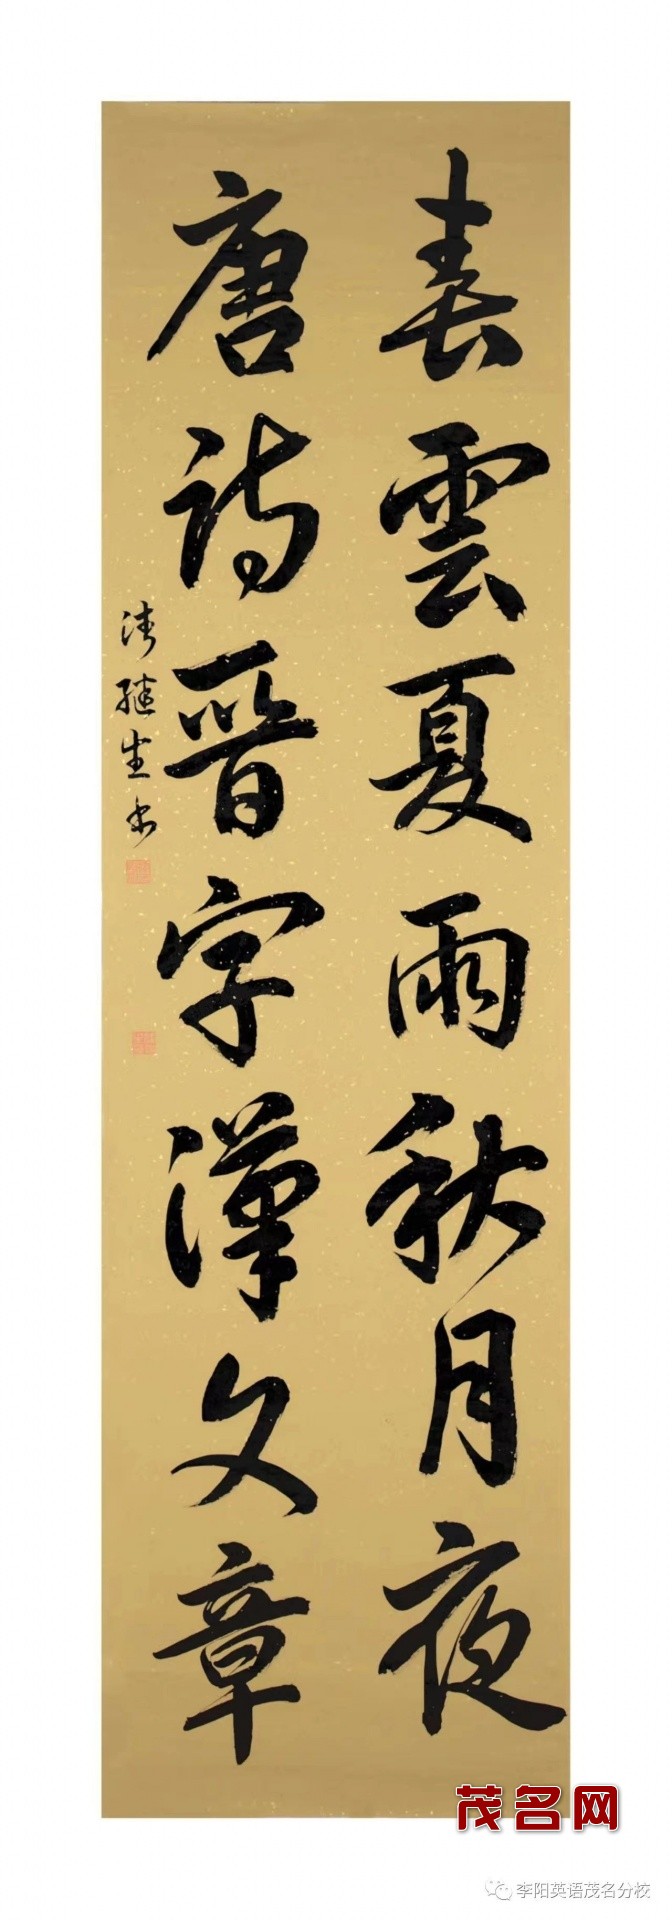 春雲夏雨秋月夜
唐詩晉字漢文章
继生书
茂名网
李阳英语茂名分校